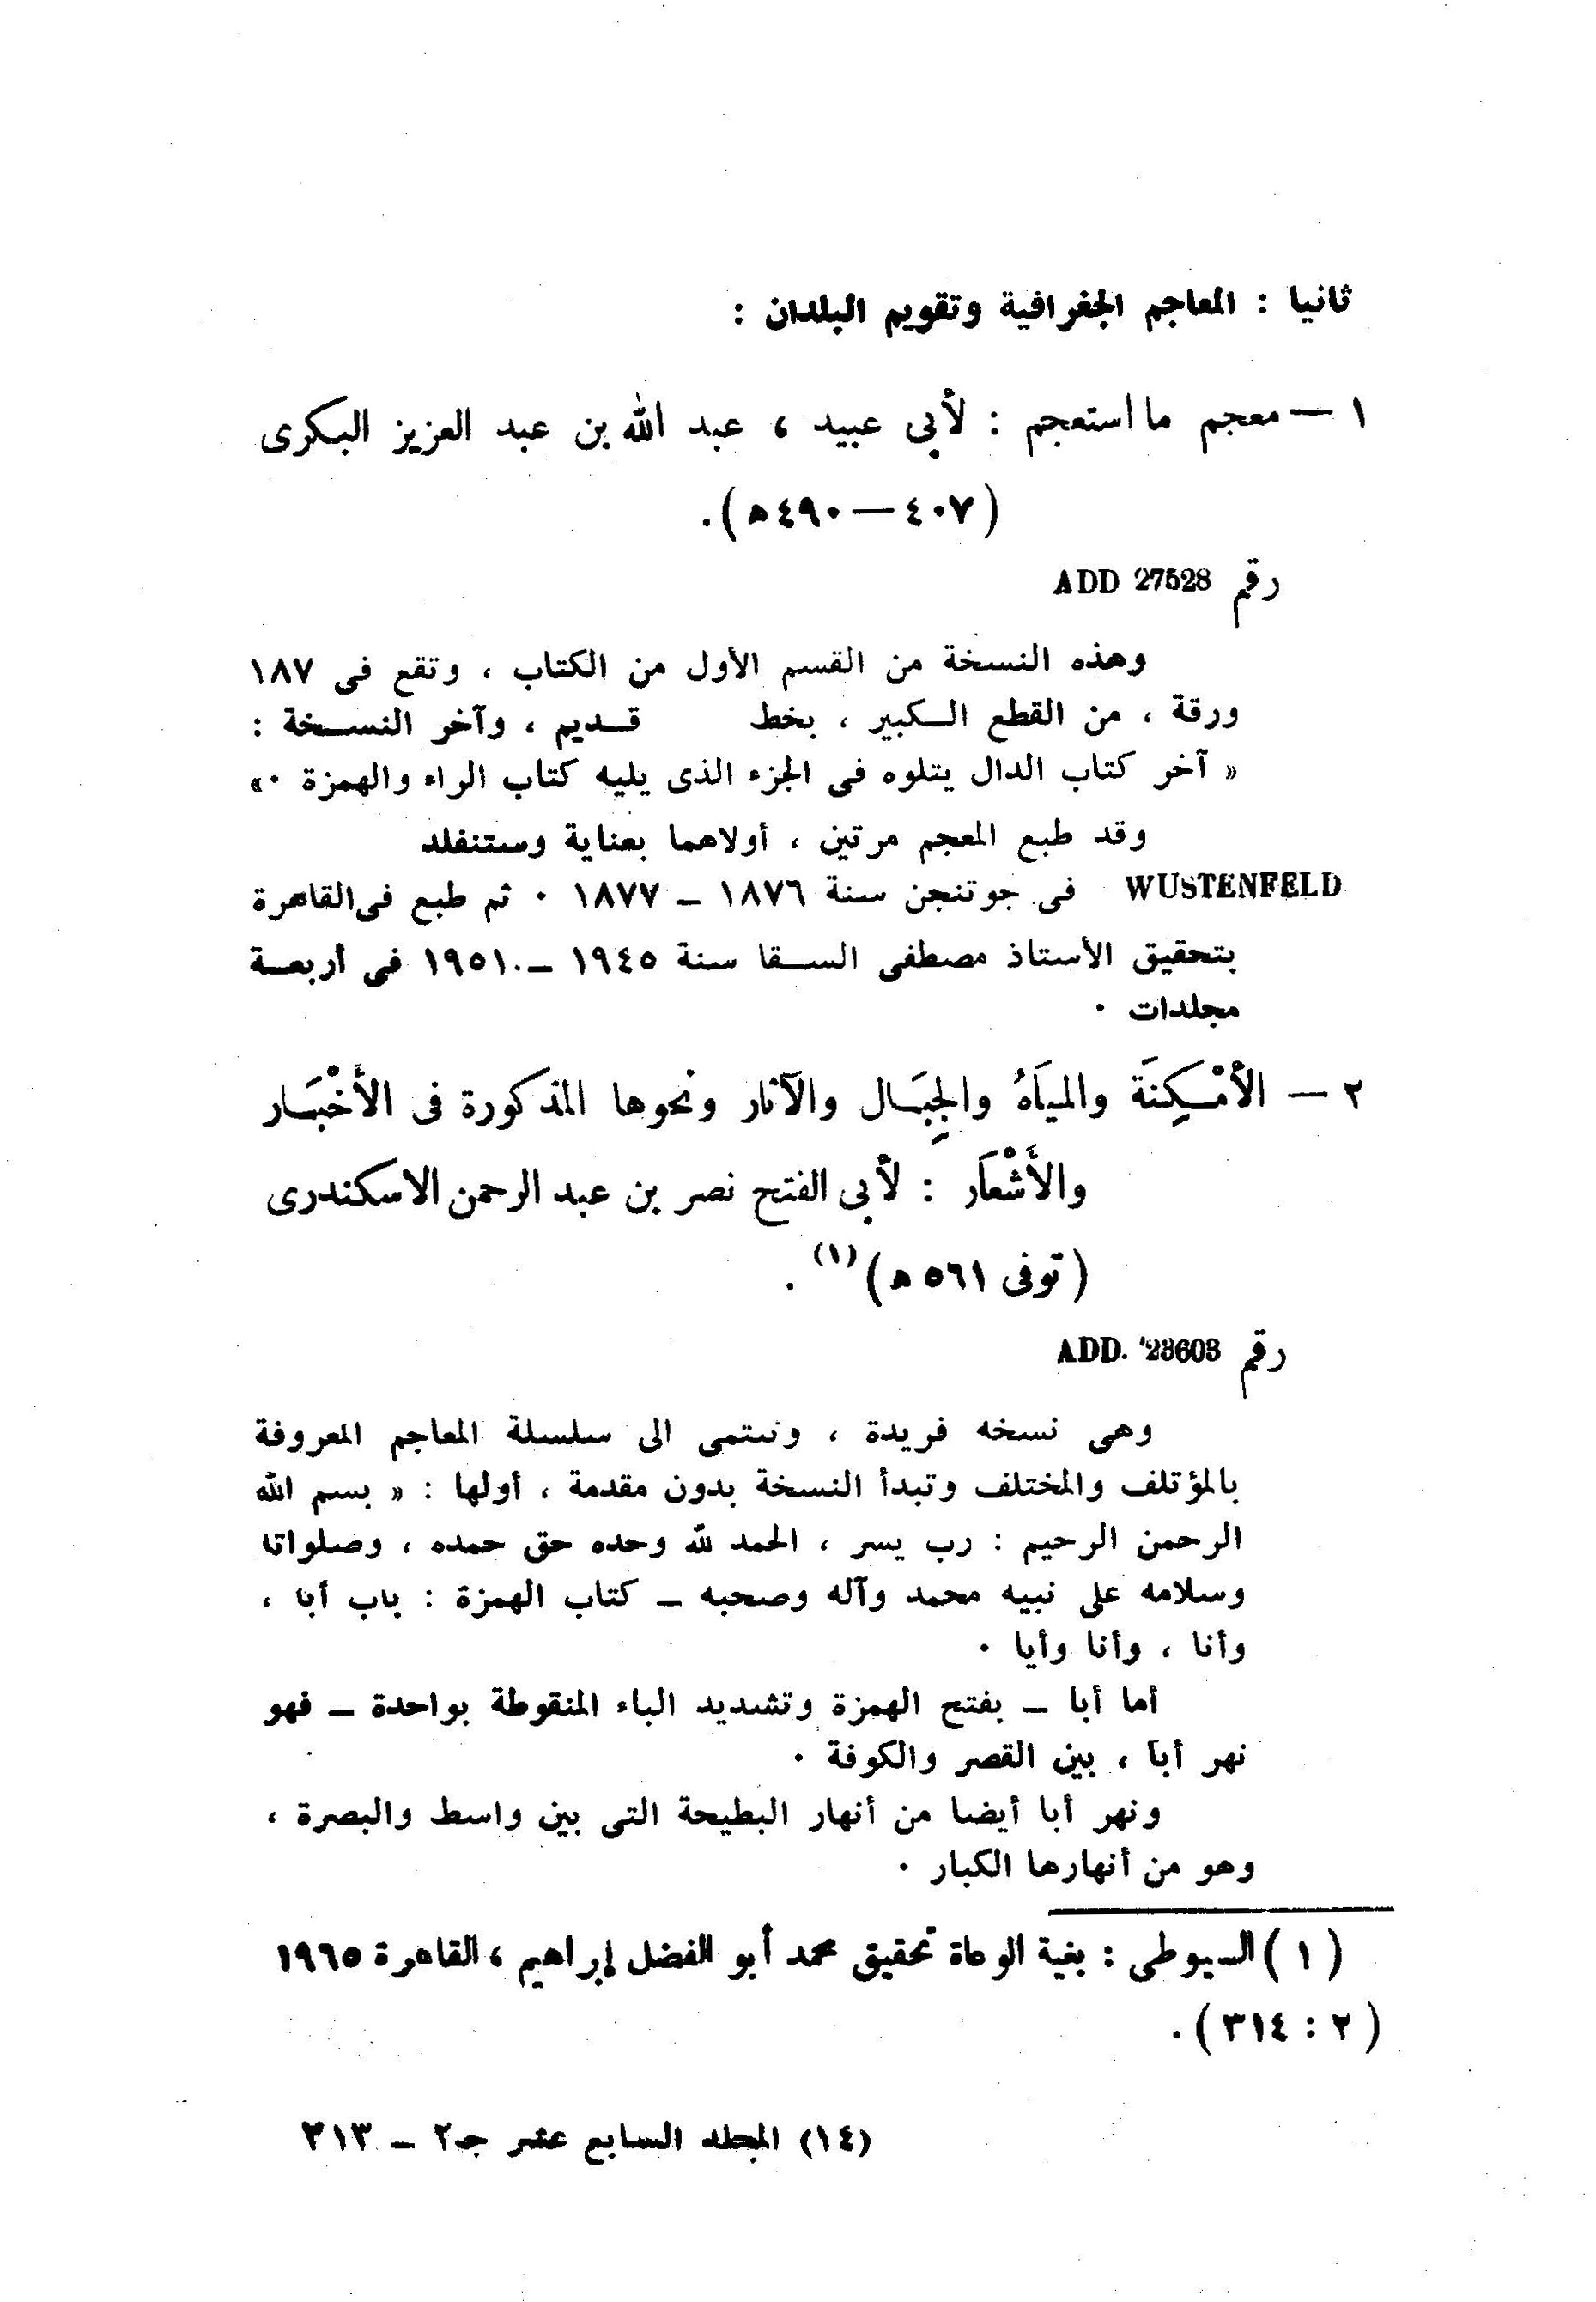 ثانيا : المعاجم الجغرافية وتقويم البلدان :
١ — معجم ما استعجم : لأبي عبيد ، عبد الله بن عبد العزيز البكرى
(٤٠٧ — ٤٩٠ه).
رقم ADD 27528
وهذه النسخة من القسم الأول من الكتاب ، وتقع فى ١٨٧
ورقة ، من القطع الـكبير ، بخط قـديم ، وآخر النســخة :
« آخر كتاب الدال يتلوه فى الجزء الذى يليه كتاب الراء والهمزة ٠»
وقد طبع المعجم مرتين ، أولاهما بعناية وستنفلد
WUSTENFELD فى جوتنجن سنة ١٨٧٦ – ١٨٧٧ ٠ ثم طبع فى القاهرة
بتحقيق الأستاذ مصطفى الســقا سنة ١٩٤٥ –٠١٩٥١ فى أربعـة
مجلدات ٠
٢ — الأمْـكِنَة والميَاهُ والجِبَـال والآثار ونحوها المذكورة فى الأَخْبَـار
والأَشْعَار : لأبى الفتح نصر بن عبد الرحمن الاسكندرى
(توفى ٥٦١ ه)(١) .
رقم ADD. '23603
وهى نسخه فريدة ، وتنتمى الى سلسلة المعاجم المعروفة
بالمؤتلف والمختلف وتبدأ النسخة بدون مقدمة ، أولها : « بسم الله
الرحمن الرحيم : رب يسر ، الحمد لله وحده حق حمده ، وصلواتا
وسلامه على نبيه محمد وآله وصحبه – كتاب الهمزة : باب أبا ،
وأنا ، وأنا وأيا ٠
أما أبا – بفتح الهمزة وتشديد الباء المنقوطة بواحدة – فهو
نهر أبا ، بين القصر والكوفة ٠
ونهر أبا أيضا من أنهار البطيحة التى بين واسط والبصرة ،
وهو من أنهارها الكبار ٠
(١) السيوطى : بغية الوعاة تحقيق محمد أبو الفضل إبراهيم ، القاهرة ١٩٦٥
(٢ : ٣١٤).
(١٤) المجلد السابع عشر جـ٢ – ٣١٣